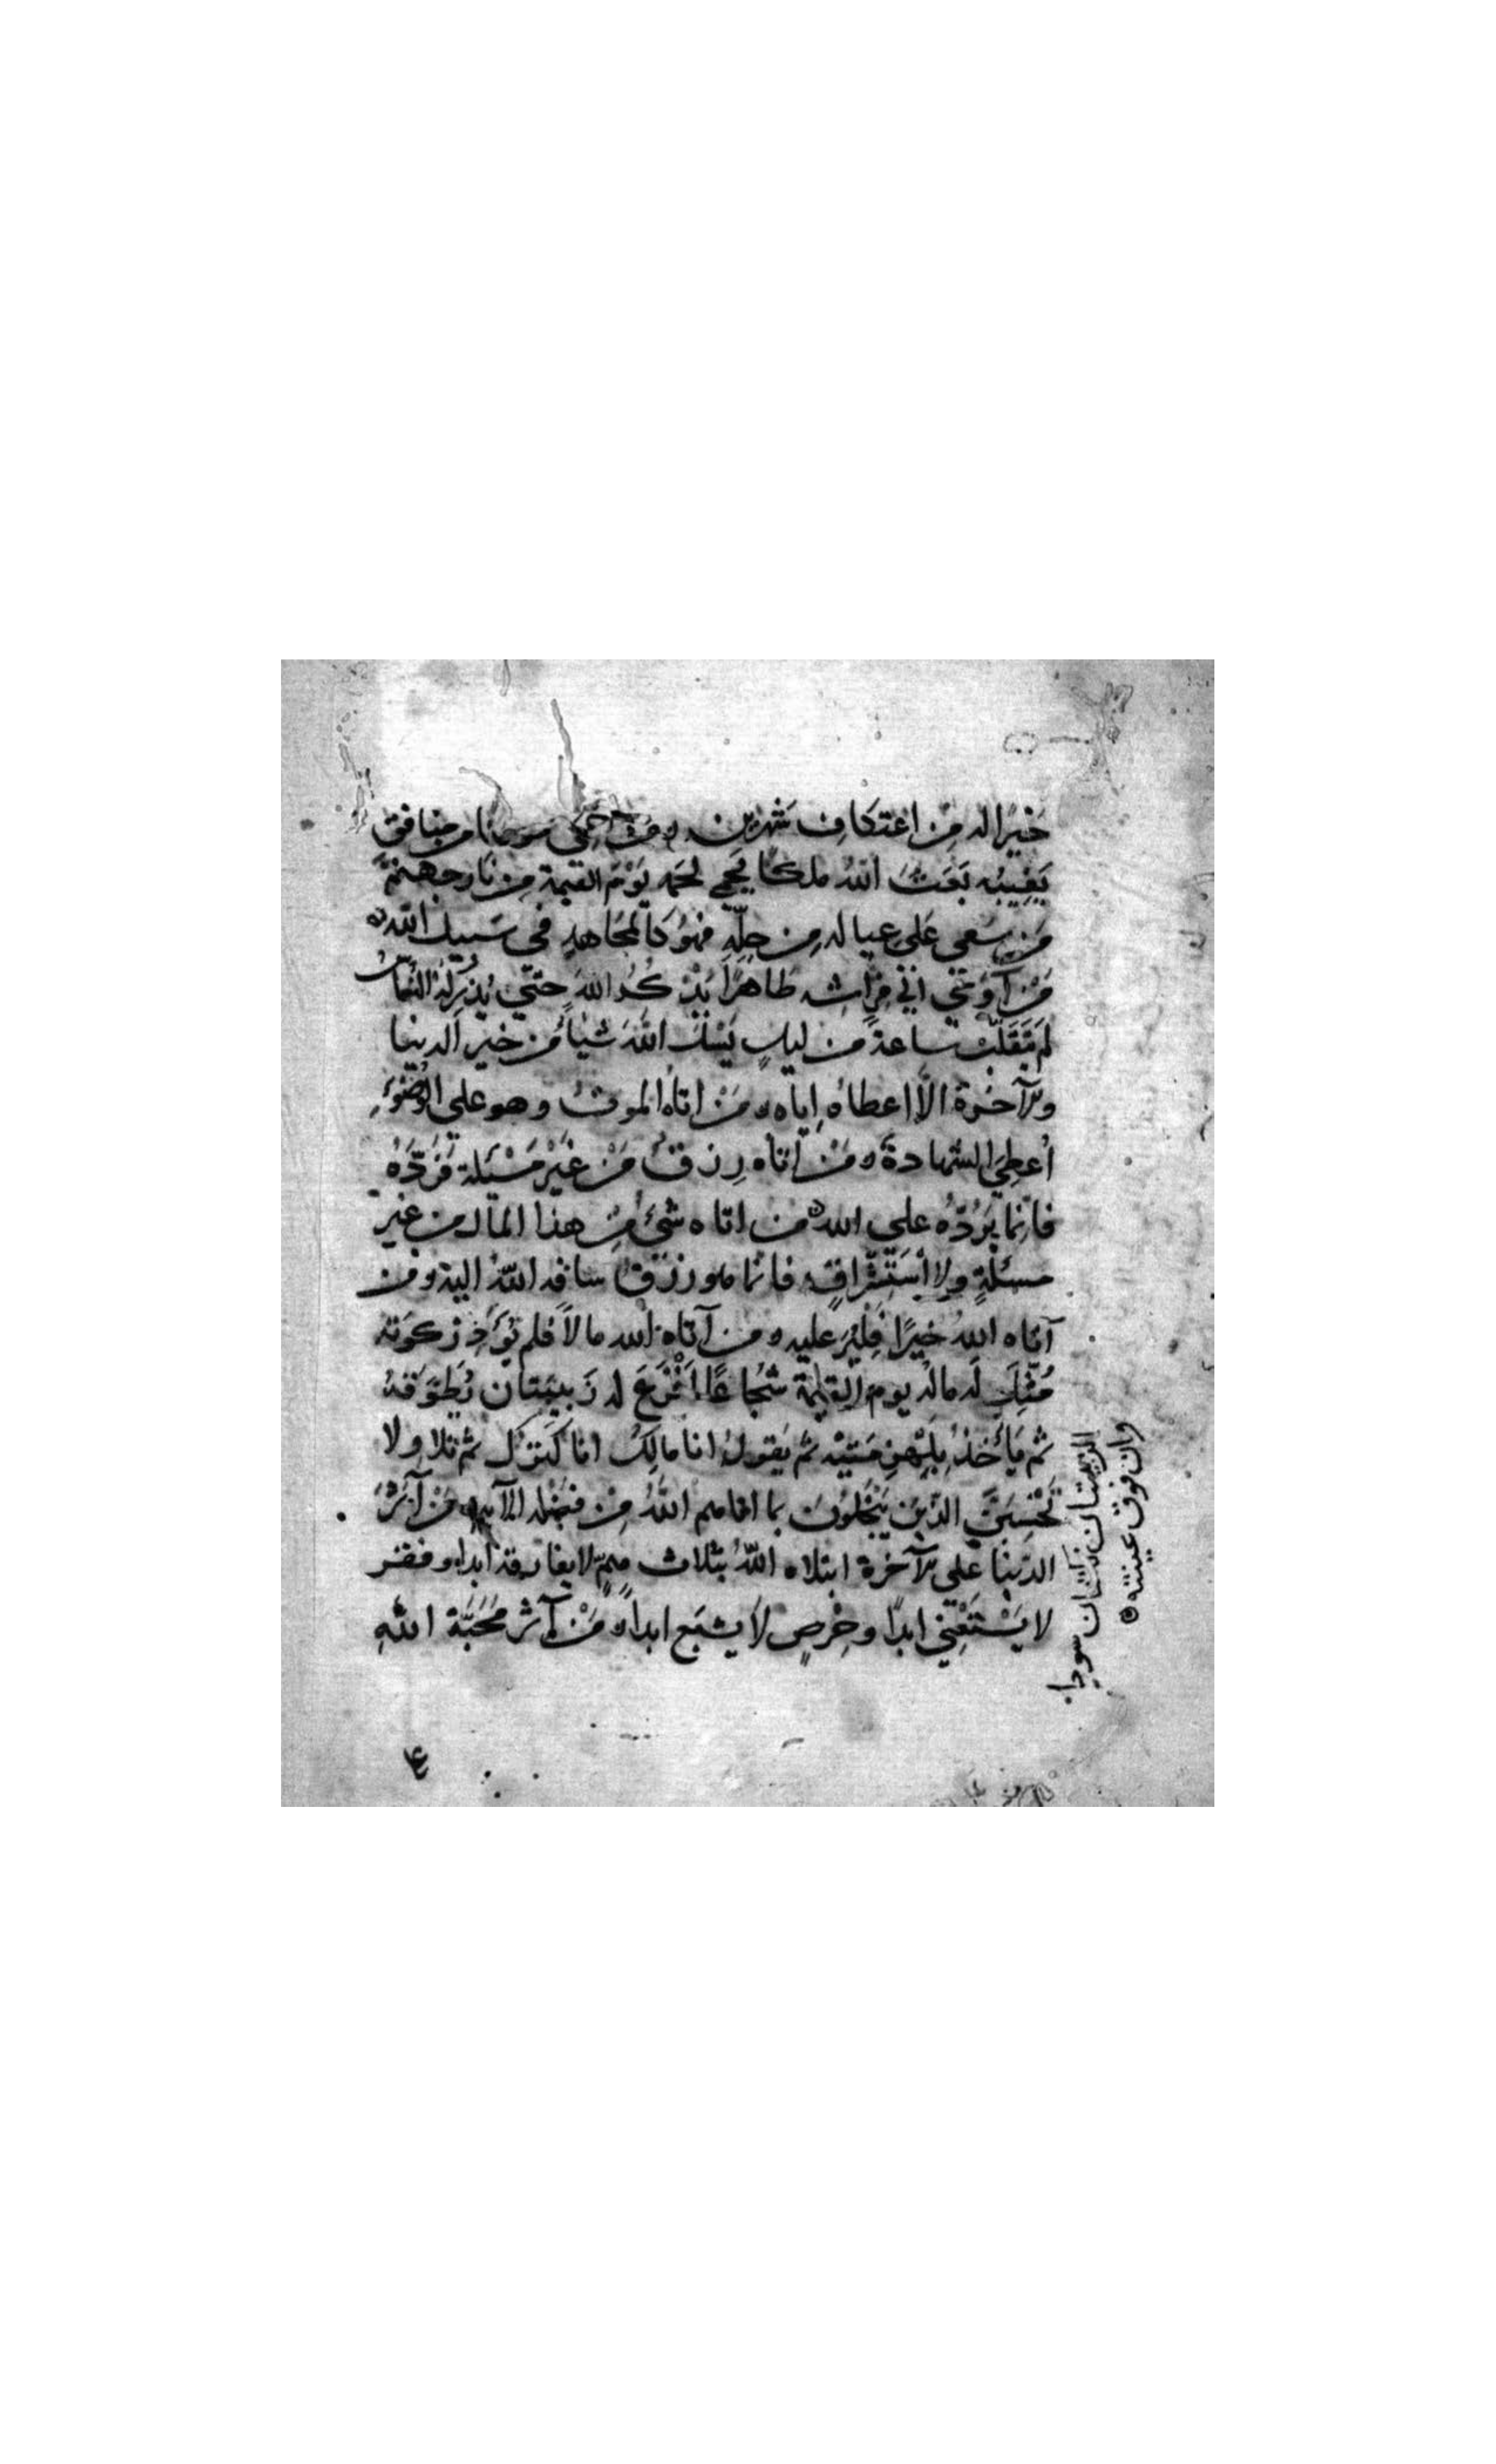 خَيرًا له مِن اعتكاف شهرَين ومَن حَمَى مومنا من منافق
يَغِيبُه بَعَثَ اللهُ ملكًا يحمي لحمه يَوْمَ القيمة مِن نار جهنّم
مَن سَعى عَلى عياله مِن حِلّه فهُو كالمجَاهدِ في سَبيل الله
مَنْ آوَى الى فِراشه طاهرًا يَذْكُرُ اللهَ حتّى يُدْرِكَهُ النُّعَاسُ
لم يَتَقَلَّبْ ساعةً من ليلٍ يَسْئَلُ اللهَ شيأً مِن خير الدنيا
والآخرة الّا اعطاه إياه ومَنْ اتاهُ الموتُ وهو على الوُضُوءِ
أُعطِيَ الشهادةَ ومَنْ أتاه رِزقٌ مَنْ غَيْرِ مَسْئَلة فَرَدَّهُ
فانما يَرُدُّه على الله من اتاه شئ مِن هذا المال من غير
مسئلةٍ ولا اسْتَشْرافٍ فانما هو رزقٌ ساقه اللهُ اليه ومن
آتاه اللهُ خيرًا فَلْيُرَ عليه ومن آتاه الله مالاً فلم يُؤَدِّ زكوته
مُثِّلَ له مالُه يوم القيمة شُجَاعًا أقْرَعَ له زَبيبَتان يُطَوَّقهُ
ثم يَأخذُ بِلِهْزِمَتَيْه ثم يَقولُ انا مالكُ انا كَنزكَ ثم تلا ولا
تَحْسِبَنَّ الذين يَبْخَلُونَ بما اتاهم اللهُ مِنْ فضله الآية مَنْ آثَرَ
الدنيا عَلى الآخرة ابتلاه اللهُ بثلاث همٍّ لا يفارقه أبدا وفقرٍ
لا يَسْتَغْنِي ابدًا وحِرصٍ لا يشبَع ابداً مَنْ آثر مَحَبَّة الله
الزبيبتان نكتتان سوداـ
وان فوق عينيه